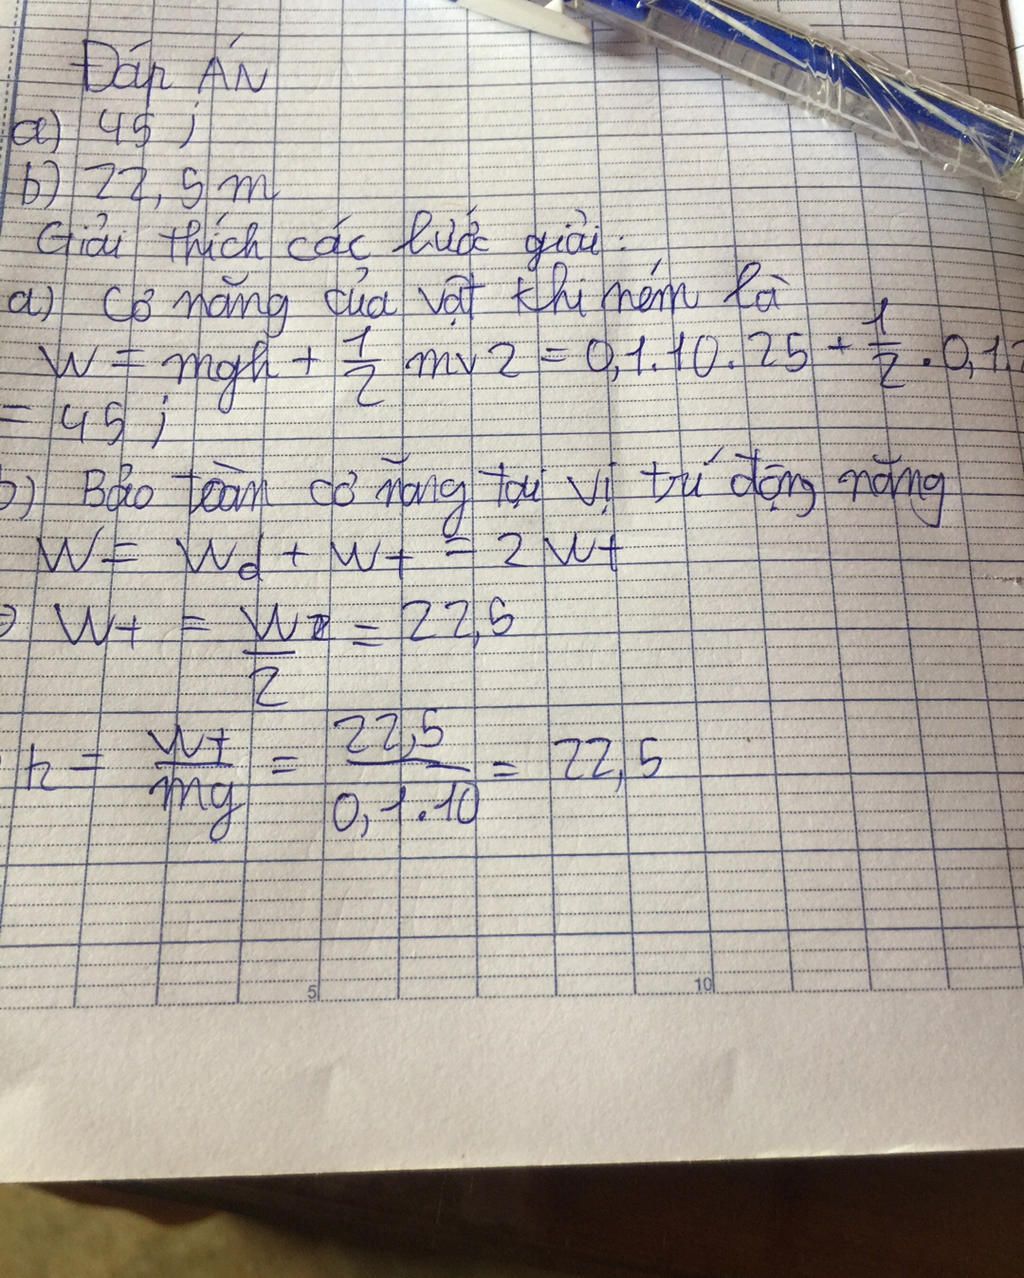 Đáp ÁN
a) 45 j
b) 22,5 m
Giải thích các bước giải:
a) Cơ năng của vật khi ném là
W = mgh + 1/2 mv2 = 0,1.10.25 + 1/2.0,1.
= 45 j
b) Bảo toàn cơ năng tại vị trí động năng
W = Wd + Wt = 2 Wt
Wt = W/2 = 22,5
h = Wt/mg = 22,5/0,1.10 = 22,5
5
10